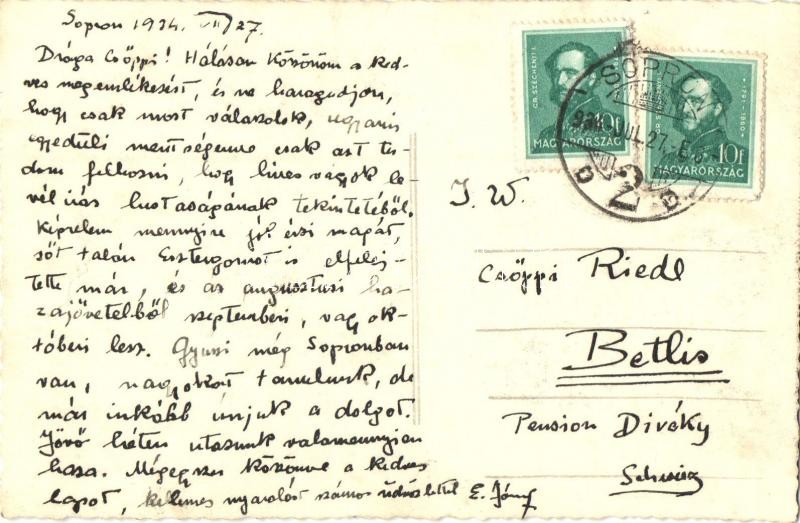 Sopron 1934. VII/27.
Drága Csöppi! Hálásan Köszönöm a ked-
ves megemlékezést, és ne haragudjon,
hogy csak most válaszolok, ugyanis
egyedüli mentségemre csak azt tu-
dom felhozni, hogy híres vagyok le-
vél írás lustaságának tekintetéből.
Képzelem mennyire jól érzi magát,
sőt talán Esztergomot is elfelej-
tette már, és az augusztusi ha-
zajövetelből szeptemberi, vagy ok-
tóberi lesz. Gyuszi még Sopronban
van, nagyokat tanulunk, de
már inkább unjuk a dolgot.
Jövő héten utazunk valamennyien
haza. Mégegyszer köszönve a kedves
lapot, kellemes nyaralást számos üdvözlettel E. József
GR. SZÉCHENYI I.
10f
MAGYARORSZÁG
1791-1860
10f
MAGYARORSZÁG
SOPRON
934 JUL. 27.
2
D D
I. W.
Csöppi Riedl
Betlis
Pension Diváky
Schweiz